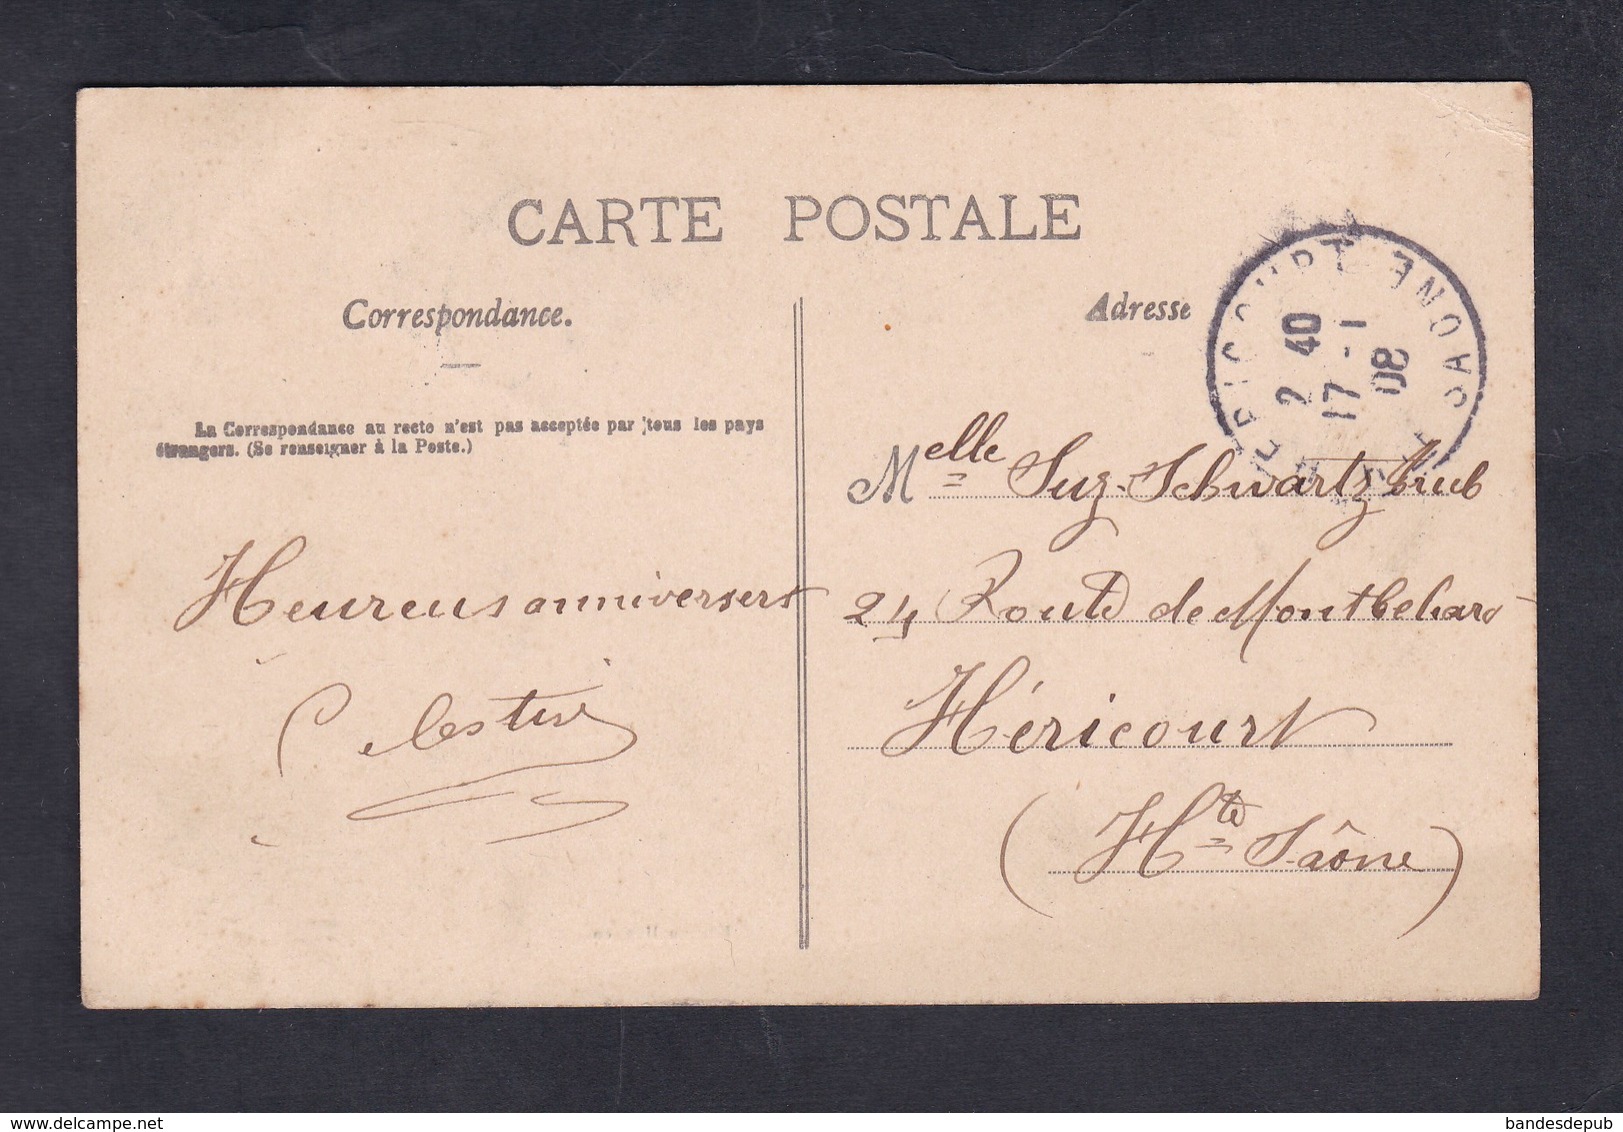 CARTE POSTALE
Correspondance.
Adresse
HERICOURT
Hte SAONE
2 40
17 -1
08
La Correspondance au recto n'est pas acceptée par tous les pays
étrangers. (Se renseigner à la Poste.)
Melle Suz. Schwartz
Heureus anniversers
Celestine
24 Route de Montbeliard
Héricourt
(Hte Saône)
delcampe.net
bandesdepub